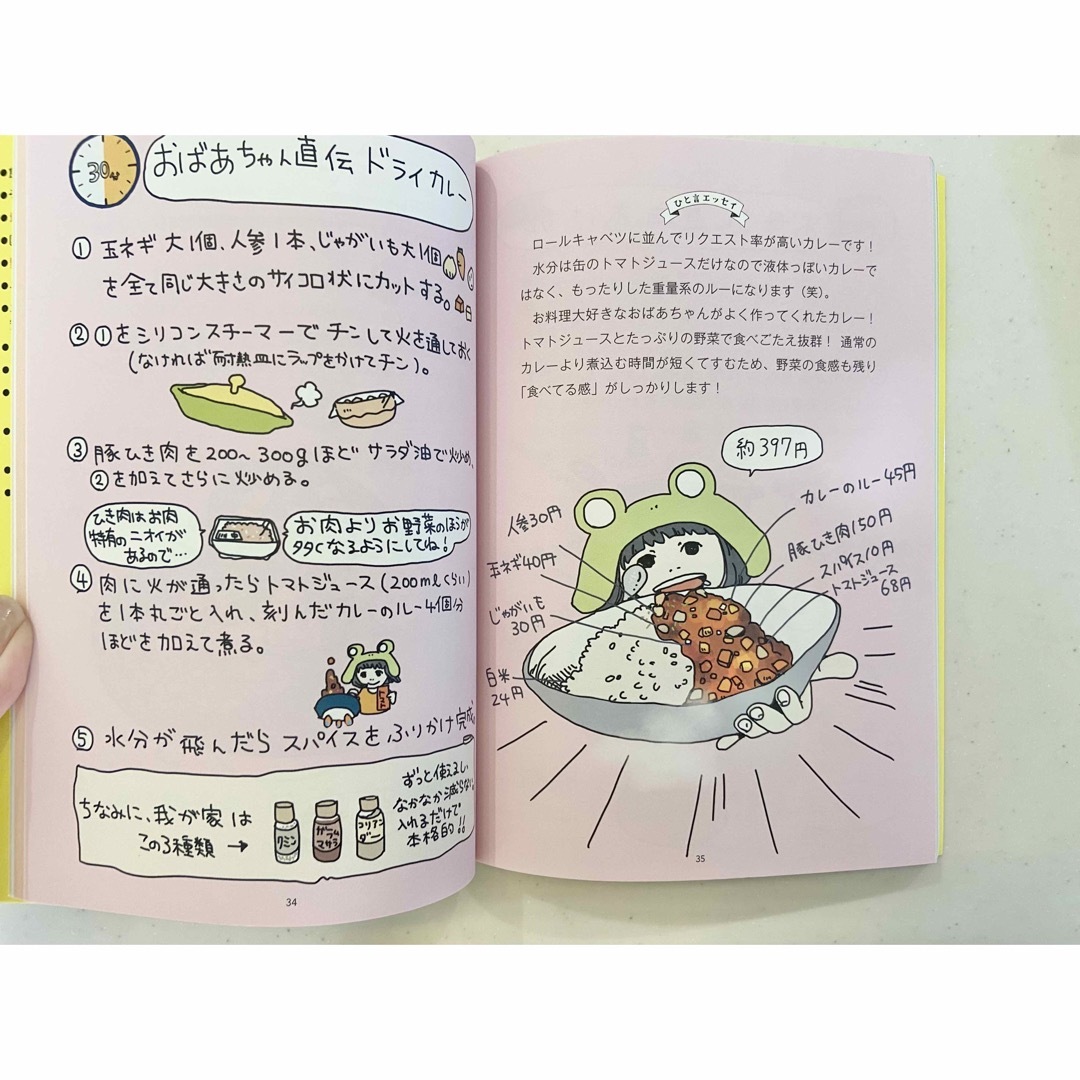 30分
おばあちゃん直伝 ドライカレー
① 玉ネギ 大1個、人参1本、じゃがいも大1個
を全て同じ大きさのサイコロ状にカットする。
② ①をシリコンスチーマーで チンして火を通しておく
(なければ耐熱皿にラップをかけてチン)。
③ 豚ひき肉を200〜300gほど サラダ油で炒め、
②を加えてさらに炒める。
ひき肉はお肉
特有のニオイが
あるので…
お肉よりお野菜のほうが
多くなるようにしてね!
④ 肉に火が通ったらトマトジュース(200mlくらい)
を1本丸ごと入れ、刻んだカレーのルー4個分
ほどを加えて煮る。
⑤ 水分が飛んだら スパイスをふりかけ完成。
ちなみに、我が家は
この3種類 →
クミン
ガラム
マサラ
コリアン
ダー
ずっと使えるし、
なかなか減らない。
入れるだけで
本格的!!
34
ひと言エッセイ
ロールキャベツに並んでリクエスト率が高いカレーです!
水分は缶のトマトジュースだけなので液体っぽいカレーで
はなく、もったりした重量系のルーになります(笑)。
お料理大好きなおばあちゃんがよく作ってくれたカレー!
トマトジュースとたっぷりの野菜で食べごたえ抜群! 通常の
カレーより煮込む時間が短くてすむため、野菜の食感も残り
「食べてる感」がしっかりします!
約397円
人参30円
玉ネギ40円
じゃがいも
30円
白米
24円
カレーのルー45円
豚ひき肉150円
スパイス10円
トマトジュース
68円
35